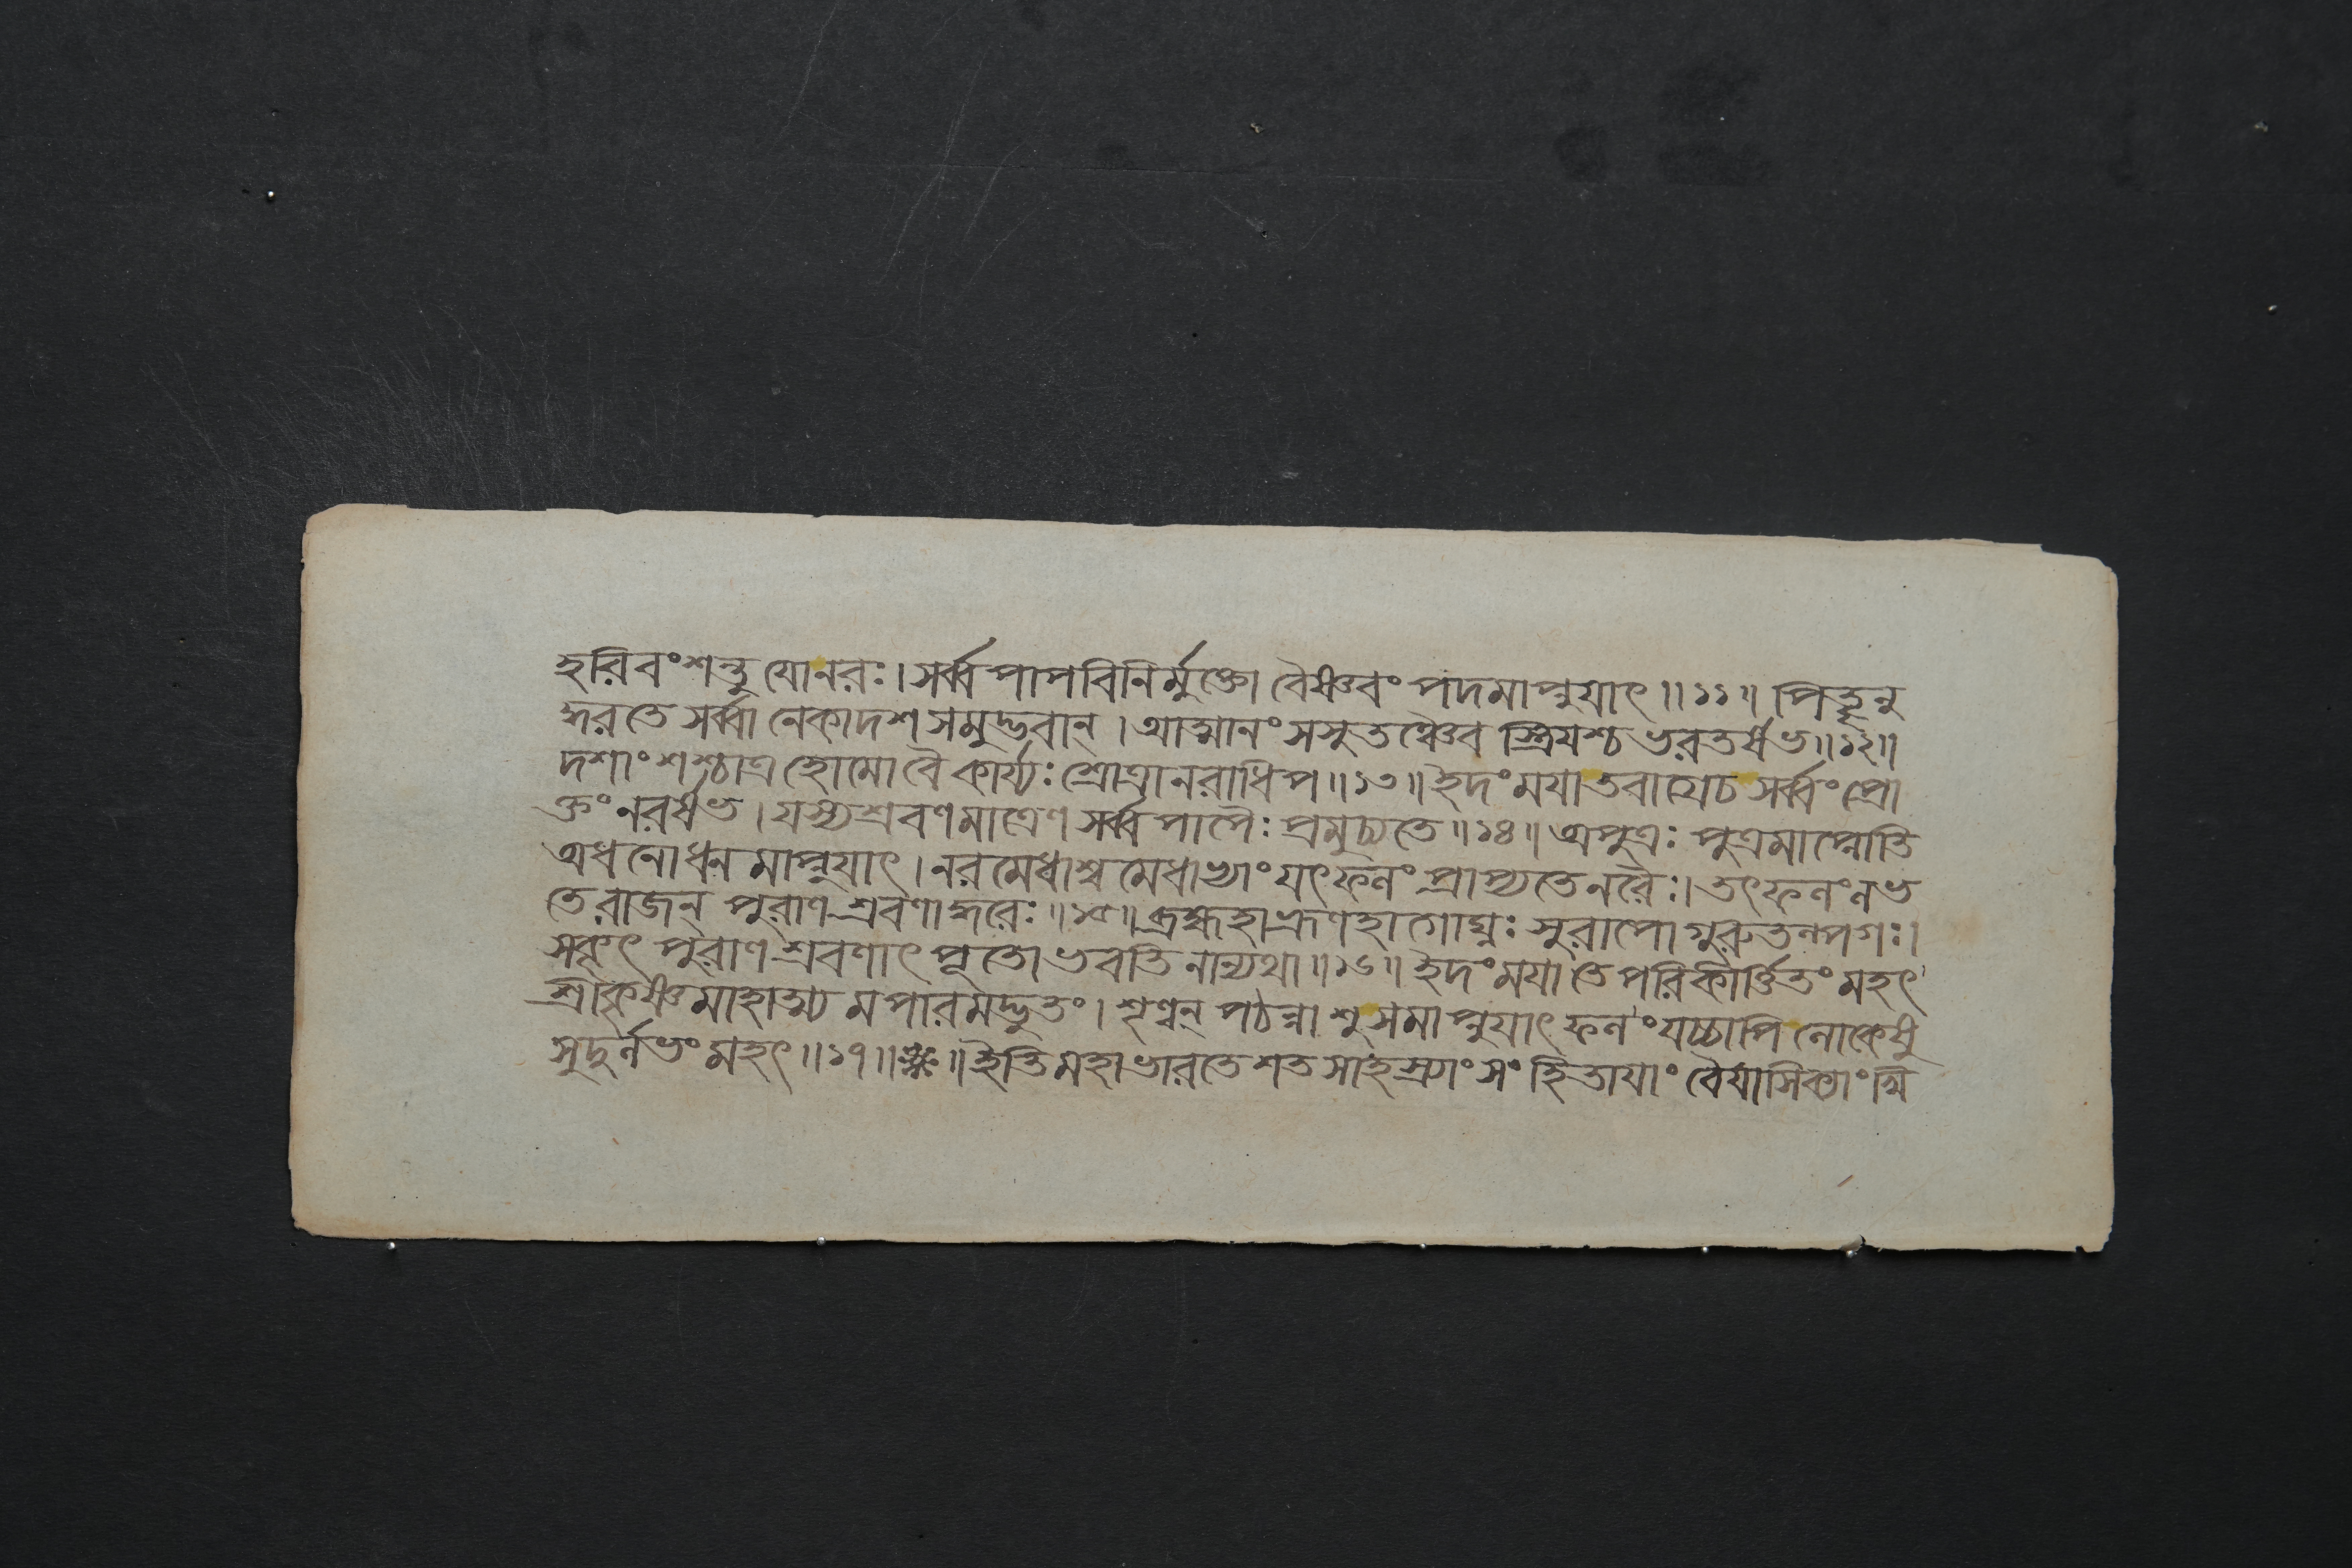 হরিবংশন্তু যোনরঃ। সর্ব্বপাপবিনির্মুক্তো বৈষ্ণবং পদমাপ্নুয়াৎ॥১১॥ পিতৄনু
দ্ধরতে সর্ব্বানেকাদশসমুদ্ভবান্। আত্মানং সসুতঞ্চৈব স্ত্রিয়শ্চ ভরতর্ষভ॥১২॥
দশাংশশ্চাত্র হোমো বৈ কার্য্যঃ শ্রোত্রা নরাধিপ॥১৩॥ ইদং ময়া তবাগ্রে চ সর্ব্বং প্রো
ক্তং নরর্ষভ। যস্য শ্রবণমাত্রেণ সর্ব্বপাপৈঃ প্রমুচ্যতে॥১৪॥ অপুত্রঃ পুত্রমাপ্নোতি
অধনো ধনমাপ্নুয়াৎ। নরমেধাশ্বমেধাভ্যাং যৎফলং প্রাপ্যতে নরৈঃ। তৎফলং লভ
তে রাজন্ পুরাণশ্রবণাদ্ধরেঃ॥১৫॥ ব্রহ্মহা ভ্রূণহা গোঘ্নঃ সুরাপো গুরুতল্পগঃ।
সকৃৎ পুরাণশ্রবণাৎ পূতো ভবতি নান্যথা॥১৬॥ ইদং ময়া তে পরিকীর্ত্তিতং মহৎ
শ্রীকৃষ্ণমাহাত্ম্যমপারমদ্ভুতং। শৃণ্বন্ পঠন্নাশু সমাপ্নুয়াৎ ফলং যচ্চাপি লোকেষু
সুদুর্লভং মহৎ॥১৭॥ ॥ ইতি মহাভারতে শতসাহস্র্যাং সংহিতায়াং বৈয়াসিক্যাং খি